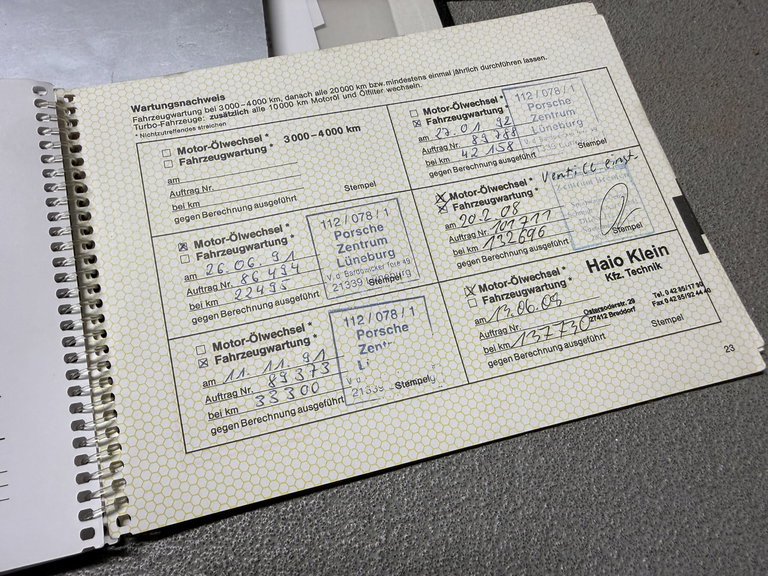 Wartungsnachweis
Fahrzeugwartung bei 3000–4000 km, danach alle 20000 km bzw. mindestens einmal jährlich durchführen lassen.
Turbo-Fahrzeuge: zusätzlich alle 10000 km Motoröl und Ölfilter wechseln.
* Nichtzutreffendes streichen
Motor-Ölwechsel * 3000–4000 km
Fahrzeugwartung *
am
Auftrag Nr.
bei km
gegen Berechnung ausgeführt
Stempel
Motor-Ölwechsel *
Fahrzeugwartung *
am 26.06.91
Auftrag Nr. 86494
bei km 22495
gegen Berechnung ausgeführt
112 / 078 / 1
Porsche
Zentrum
Lüneburg
V. d. Bardowicker Tore 49
21339 Lüneburg
Stempel
Motor-Ölwechsel *
Fahrzeugwartung *
am 11.11.91
Auftrag Nr. 89373
bei km 33300
gegen Berechnung ausgeführt
112 / 078 / 1
Porsche
Stempel
Motor-Ölwechsel *
Fahrzeugwartung *
am 27.01.92
Auftrag Nr. 89788
bei km 42158
gegen Berechnung ausgeführt
112 / 078 / 1
Porsche
Zentrum
Lüneburg
Stempel
Motor-Ölwechsel * Ventile einst.
Fahrzeugwartung *
am 20.2.08
Auftrag Nr. 101711
bei km 132696
gegen Berechnung ausgeführt
Stempel
Motor-Ölwechsel *
Fahrzeugwartung *
am 13.06.08
Auftrag Nr.
bei km 137730
gegen Berechnung ausgeführt
Haio Klein
Kfz. Technik
27412 Breddorf
Stempel
23